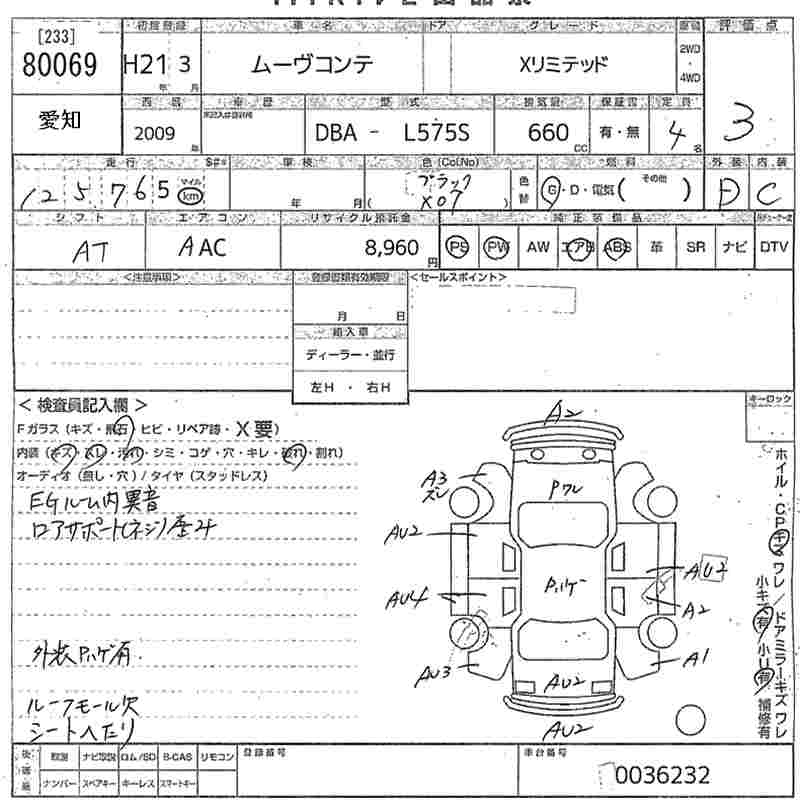 [233]
80069
初度登録
車名
ドア
グレード
評価点
H21 3
年 月
ムーヴコンテ
Xリミテッド
2WD
4WD
3
愛知
2009
年
車歴
型式
排気量
保証書
定員
DBA - L575S
660
CC
有・無
4
名
走行
車検
色(Col.No)
燃料
外装
内装
125765
マイル
km
年 月
ブラック
X07
色替
G・D・電気( その他 )
D
C
シフト
エアコン
リサイクル預託金
純正装備品
AT
AAC
8,960
円
PS
PW
AW
エアB
ABS
革
SR
ナビ
DTV
<注意事項>
登録書類有効期限
<セールスポイント>
月 日
輸入車
ディーラー・並行
左H ・ 右H
キーロック
<検査員記入欄>
Fガラス(キズ・飛石 ヒビ・リペア跡・X要)
内装(キズ・スレ・汚れ・シミ・コゲ・穴・キレ・破れ・割れ)
オーディオ(無し・穴)/タイヤ(スタッドレス)
EGルーム内異音
ロアサポート(ネジ)歪み
外装Pハゲ有
ルーフモール欠
シートへたり
A2
A3
スレ
Pワレ
AU2
AU2
AU4
Pハゲ
A2
AU3
A1
AU2
AU2
ホイル・CPキズ ワレ/ドアミラーキズ ワレ
小キズ有 小U有 補修有
後日送
取説
ナビ取説
ロム/SD
B-CAS
リモコン
ナンバー
スペアキー
キーレス
スマートキー
登録番号
車台番号
0036232